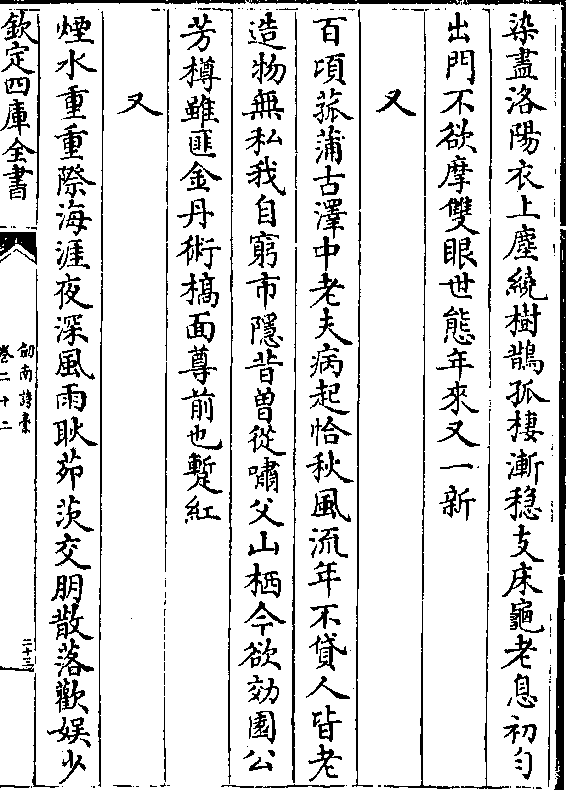 染盡洛陽衣上塵繞樹鵲孤棲漸穏支床龜老息初勻
出門不欲摩雙眼世態年來又一新
又
百頃菰蒲古澤中老夫病起怡秋風流年不貸人皆老
造物無私我自窮市隱昔曽從嘯父山栖今欲効園公
芳樽雖匪金丹術槁面尊前也蹔紅
又
煙水重重際海涯夜深風雨耿茆茨交朋散落歡娯少
欽定四庫全書
劍南詩藁
卷二十二
二十三